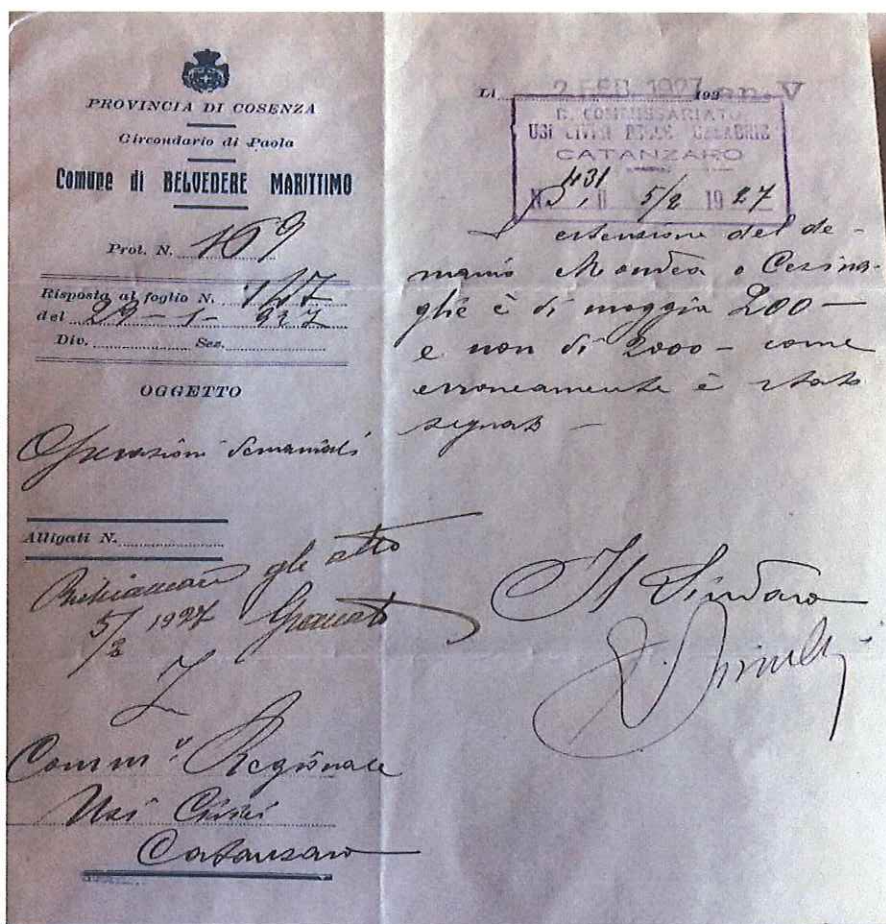 PROVINCIA DI COSENZA
Circondario di Paola
Comune di BELVEDERE MARITTIMO
Prot. N. 169
Risposta al foglio N. 147
del 29-1-927
Div. Sez.
OGGETTO
Operazioni demaniali
Alligati N.
gli atti
5/2 1927
Comm.º Regionale
Usi Civici
Catanzaro
Li 2 FEB. 1927 192 an. V
R. COMMISSARIATO
USI CIVICI DELLE CALABRIE
CATANZARO
N. 431 5/2 1927
L'estensione del de-
manio Mondea o Cesina-
glie è di moggia 200 —
e non di 2000 — come
erroneamente è stato
segnato —
Il Sindaco